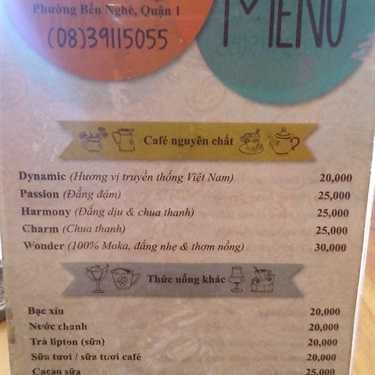 Phường Bến Nghé, Quận 1
(08)39115055
MENU
Café nguyên chất
Dynamic (Hương vị truyền thống Việt Nam) 20,000
Passion (Đắng đậm) 25,000
Harmony (Đắng dịu & chua thanh) 25,000
Charm (Chua thanh) 25,000
Wonder (100% Moka, đắng nhẹ & thơm nồng) 30,000
Thức uống khác
Bạc xỉu 20,000
Nước chanh 20,000
Trà lipton (sữa) 20,000
Sữa tươi / sữa tươi café 20,000
Cacao sữa 25,000